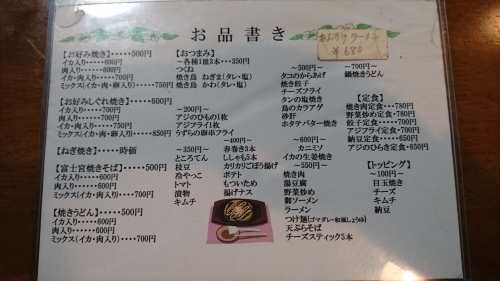 お品書き
あんかけラーメン
¥680
【お好み焼き】・・・・・500円
イカ入り・・・・・・600円
肉入り・・・・・・・600円
イカ・肉入り・・・・・700円
ミックス(イカ・肉・卵入り)・・・・・750円
【お好みしぐれ焼き】・・・・・600円
イカ入り・・・・・・700円
肉入り・・・・・・・700円
イカ・肉入り・・・・・800円
ミックス(イカ・肉・卵入り)・・・・・850円
【ねぎ焼き】・・・・・時価
【富士宮焼きそば】・・・・・500円
イカ入り・・・・・・600円
肉入り・・・・・・・600円
ミックス(イカ・肉入り)・・・・・700円
【焼きうどん】・・・・・500円
イカ入り・・・・・・600円
肉入り・・・・・・・600円
ミックス(イカ・肉入り)・・・・・700円
【おつまみ】
~各種1皿3本・・・350円
つくね
焼き鳥 ねぎま(タレ・塩)
焼き鳥 かわ(タレ・塩)
~200円~
アジのひもの1枚
アジフライ1枚
うずらの卵串フライ
~350円~
ところてん
枝豆
冷やっこ
トマト
漬物
キムチ
~400円~
春巻き3本
ししゃも5本
カリカリごぼう揚げ
ポテト
もついため
揚げナス
~500円~
タコのからあげ
焼き餃子
チーズフライ
タンの塩焼き
鳥のカラアゲ
砂肝
ホタテバター焼き
~600円~
カニミソ
イカの生姜焼き
~550円~
焼き肉
湯豆腐
野菜炒め
御ソーメン
ラーメン
つけ麺(ゴマダレ・和風しょうゆ)
天ぷらそば
チーズスティック5本
~700円~
鍋焼きうどん
【定食】
焼き肉定食・・・・・780円
野菜炒め定食・・・・・780円
餃子定食・・・・・700円
アジフライ定食・・・・・700円
納豆定食・・・・・500円
アジのひらき定食・・・・・650円
【トッピング】
~100円~
目玉焼き
チーズ
キムチ
納豆